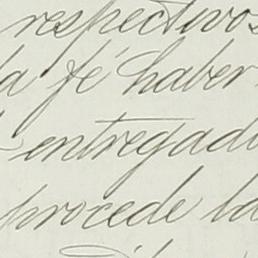 respectivos
la fé haber
entregad
procede la